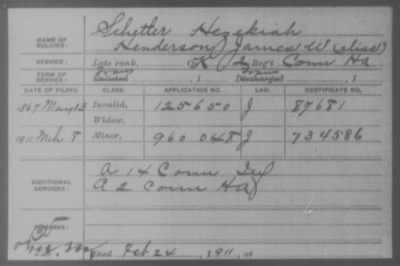 NAME OF SOLDIER: Schetler Hezekiah
Henderson, James W (alias)
SERVICE: Late rank, K 2 Reg't Conn Ha
TERM OF SERVICE: Enlisted , 1 Discharged , 1
DATE OF FILING. CLASS. APPLICATION NO. LAW. CERTIFICATE NO.
1867 Invalid, 125650 J 87681
Widow,
1911 Mch 8 Minor, 960 048 J 734586
ADDITIONAL SERVICES: A 14 Conn Inf
A 2 Conn HA
REMARKS:
Died Feb 24, 1911, at